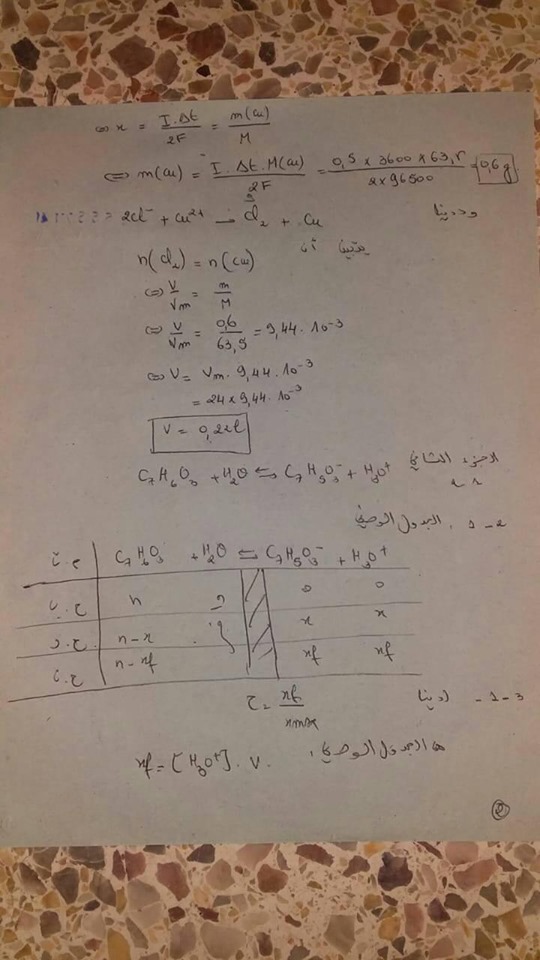 ⇔ x = I.Δt / 2F = m(Cu) / M
⇔ m(Cu) = I.Δt.M(Cu) / 2F = 0,5 x 3600 x 63,5 / 2 x 96500 = 0,6 g
2Cl⁻ + Cu²⁺ → Cl₂ + Cu ولدينا
n(Cl₂) = n(Cu)
⇔ V/Vm = m/M
⇔ V/Vm = 0,6/63,5 = 9,44 . 10⁻³
⇔ V = Vm . 9,44 . 10⁻³
= 24 x 9,44 . 10⁻³
V = 0,22 l
الجزء الثاني
C₇H₆O₃ + H₂O ⇌ C₇H₅O₃⁻ + H₃O⁺
1-2. الجدول الوصفي
C₇H₆O₃ + H₂O ⇌ C₇H₅O₃⁻ + H₃O⁺
n 0 0
n-x x x
n-xf xf xf
1-3 - لدينا
τ = xf / xmax
الجدول الوصفي:
xf = [H₃O⁺] . V
2